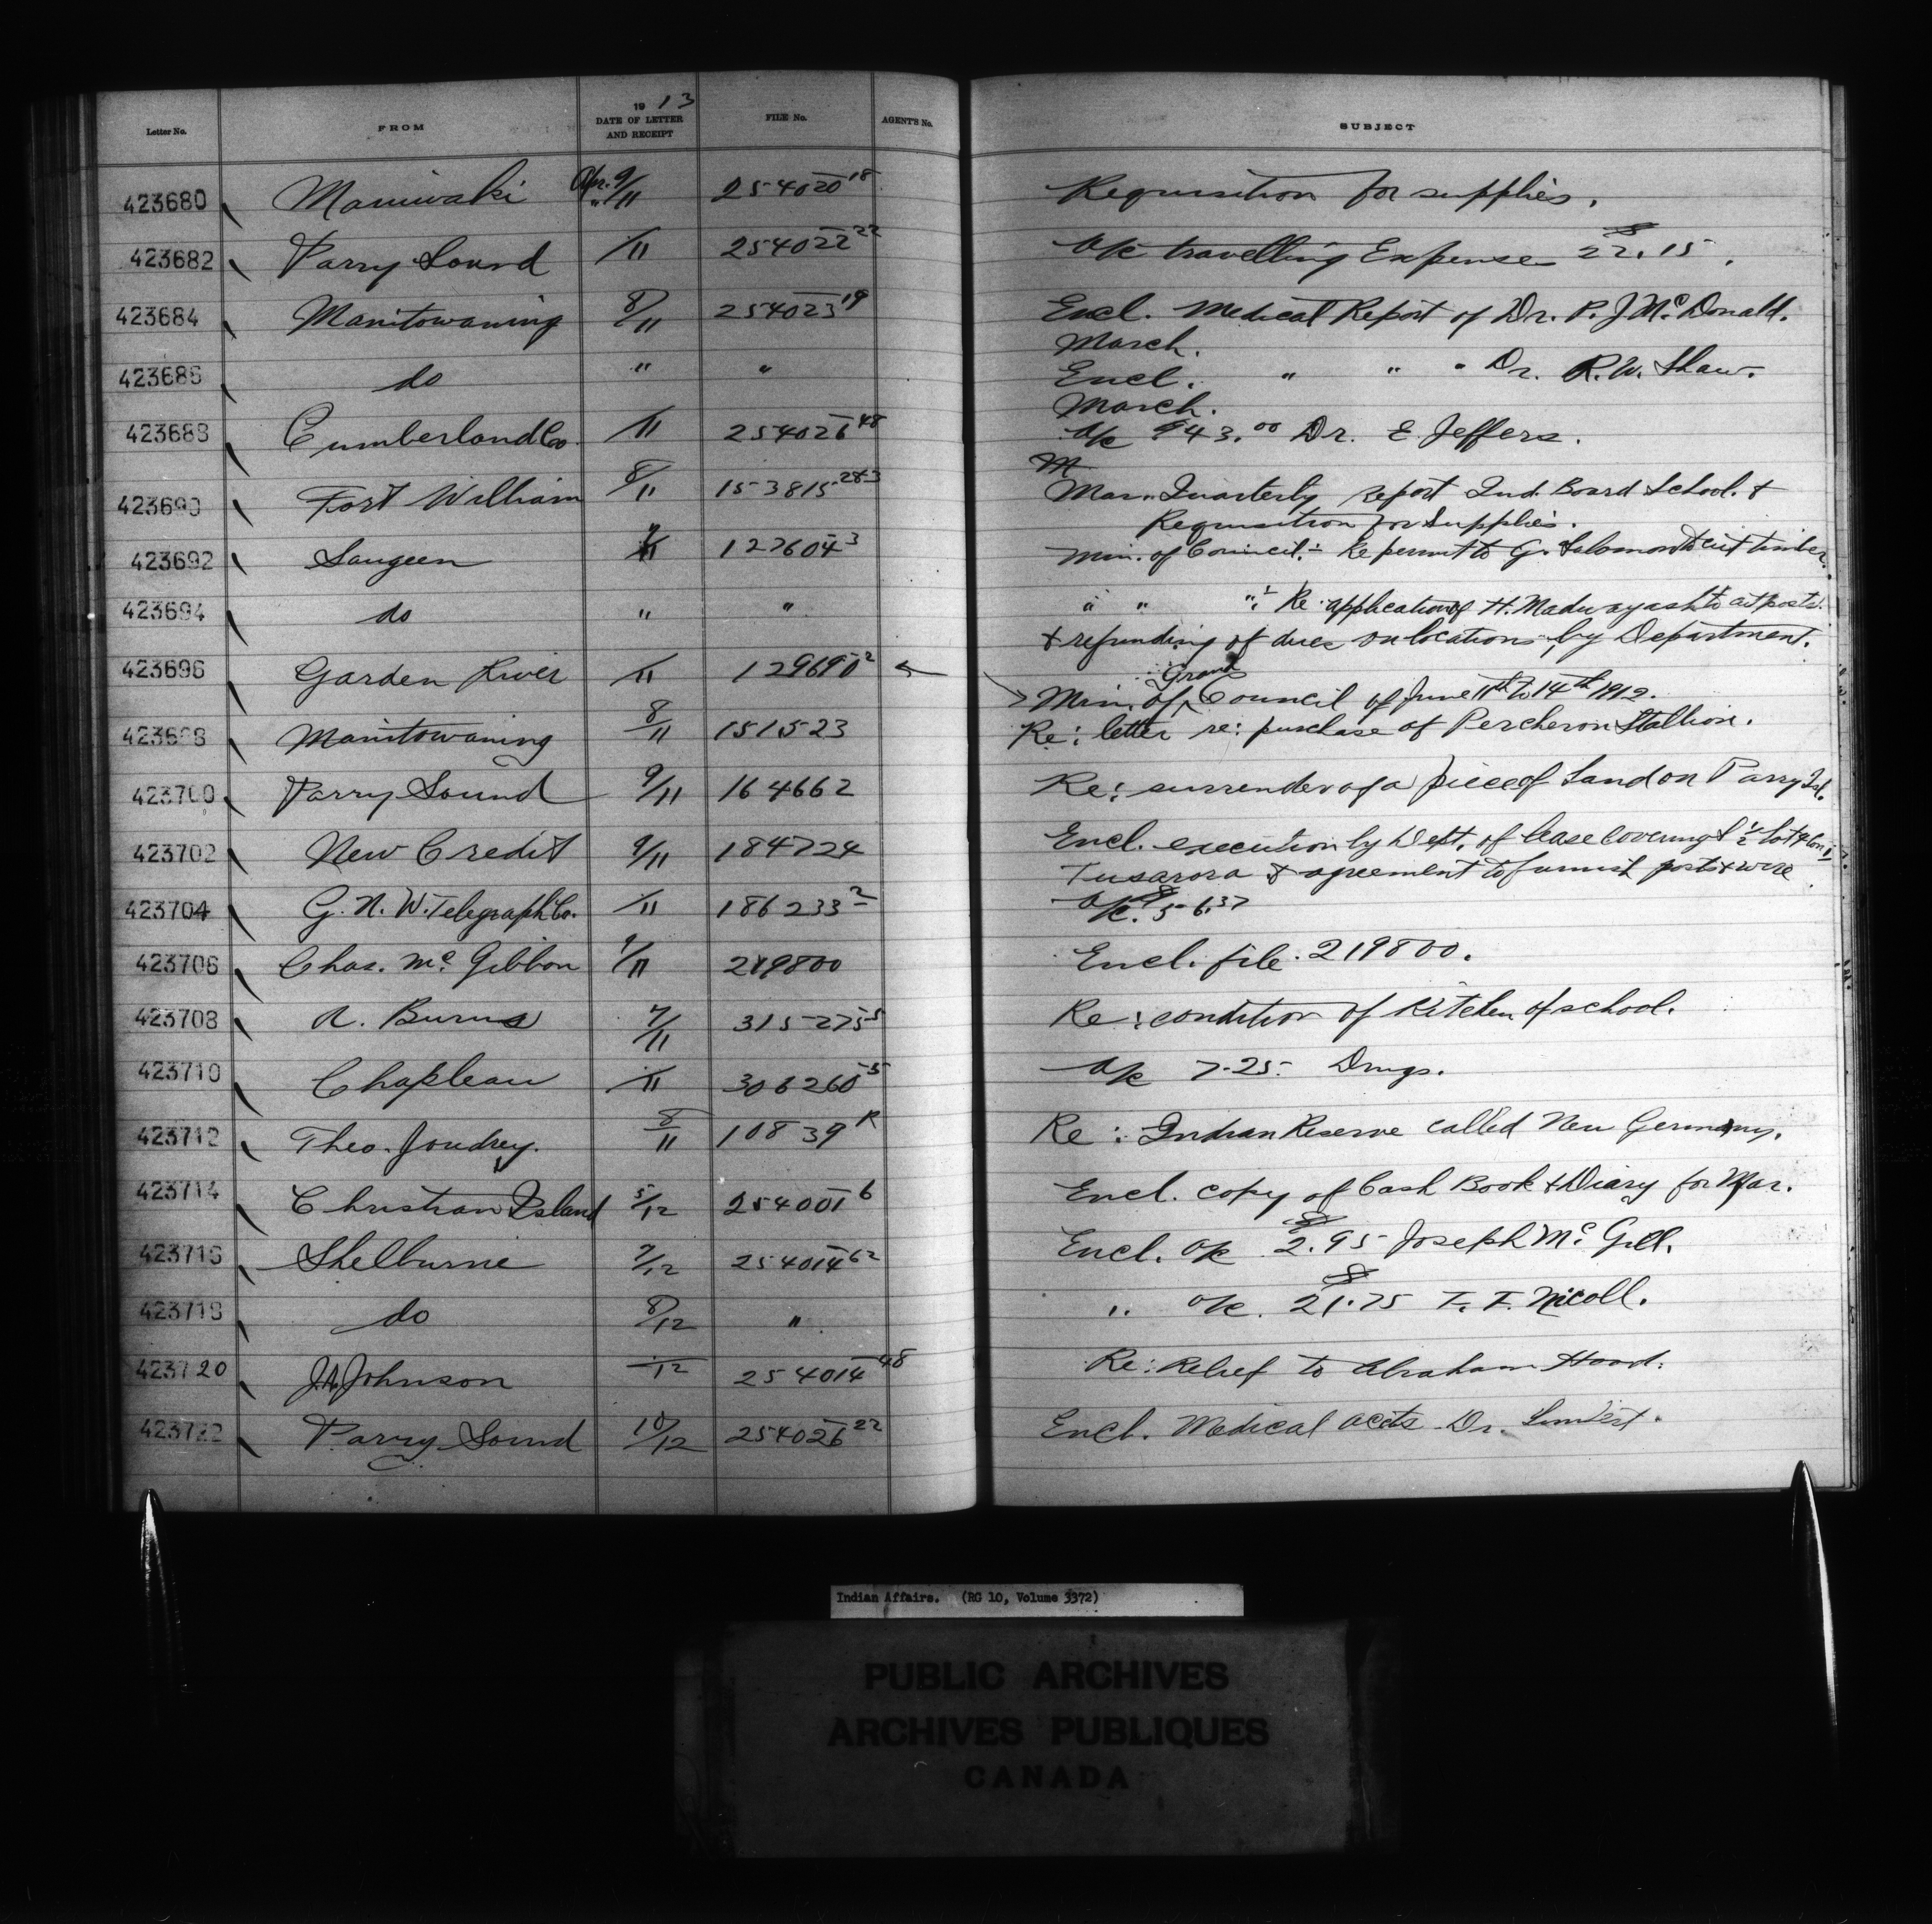 Letter No. FROM 19 13 DATE OF LETTER AND RECEIPT FILE No. AGENT'S No. SUBJECT
423680 Maniwaki Apr. 9/11 254020 18 Requisition for supplies.
423682 Parry Sound /11 254022 22 a/c travelling Expenses $22.15.
423684 Manitowaning 8/11 254023 19 Encl. Medical Report of Dr. P. J. McDonald.
March.
423686 do " " Encl. " " " Dr. R. W. Shaw.
March.
423688 Cumberland Co. /11 254026 48 a/c $43.00 Dr. E. Jeffers.
423690 Fort William 8/11 153815 28-3 Mar. Quarterly report Ind. Board School. &
Requisition for Supplies.
423692 Saugeen /11 127604 3 Min. of Council:- Re permit to G. Salomon to cut timber.
423694 do " " " " ":- Re application of H. Madwayash to cut posts.
& refunding of dues on locations by Department.
423696 Garden River /11 129690 2 Min. of Grand Council of June 11th to 14th 1912.
423698 Manitowaning 8/11 151523 Re: letter re: purchase of Percheron Stallion.
423700 Parry Sound 9/11 164662 Re: surrender of a piece of Land on Parry Isl.
423702 New Credit 9/11 184724 Encl. execution by Dept. of lease covering 1/2 lot Con
Tusarora & agreement to furnish posts & wire
423704 G. N. W. Telegraph Co. /11 186233 2 a/c. $56.37
423706 Chas. McGibbon 9/11 219800 Encl. file. 219800.
423708 A. Burns 7/11 315275 5 Re: condition of Kitchen of school.
423710 Chapleau /11 306260 5 a/c 7.25. Drugs.
423712 Theo. Joudrey. 8/11 10839 R Re: Indian Reserve called New Germany.
423714 Christian Island 5/12 254001 6 Encl. copy of Cash Book & Diary for Mar.
423716 Shelburne 7/12 254014 62 Encl. a/c $2.95 Joseph McGill.
423718 do 8/12 " " a/c. $21.75 T. F. Nicoll.
423720 J.A. Johnson /12 254014 48 Re: Relief to Abraham Hood.
423722 Parry Sound 10/12 254026 22 Encl. Medical accts Dr.
Indian Affairs. (RG 10, Volume 3372)
PUBLIC ARCHIVES
ARCHIVES PUBLIQUES
CANADA